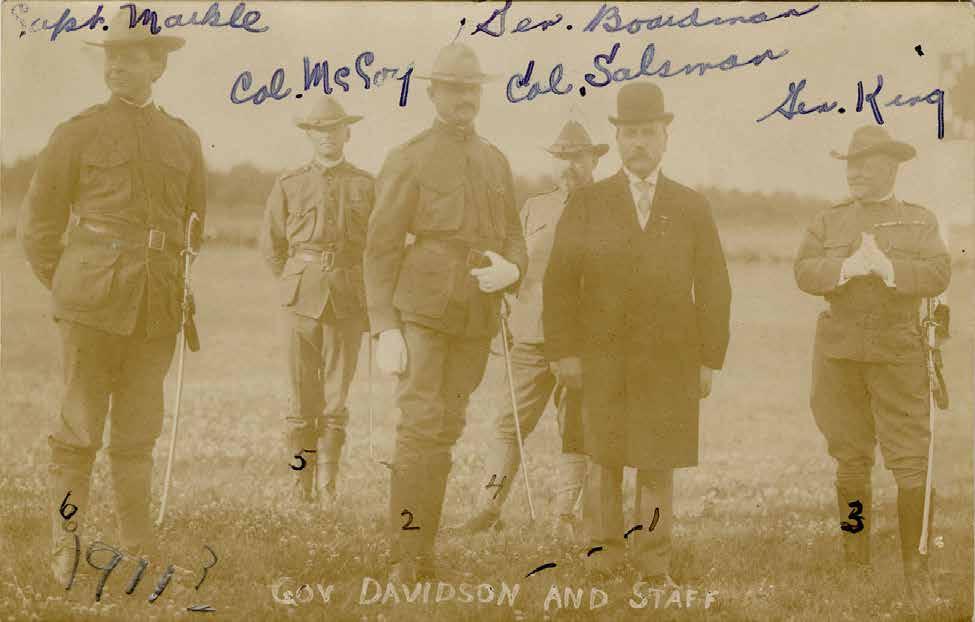 Capt. Markle
Gen. Boardman
Col. McCoy
Col. Salsman
Gen. King
5
4
6
2
1
3
1911?
GOV DAVIDSON AND STAFF